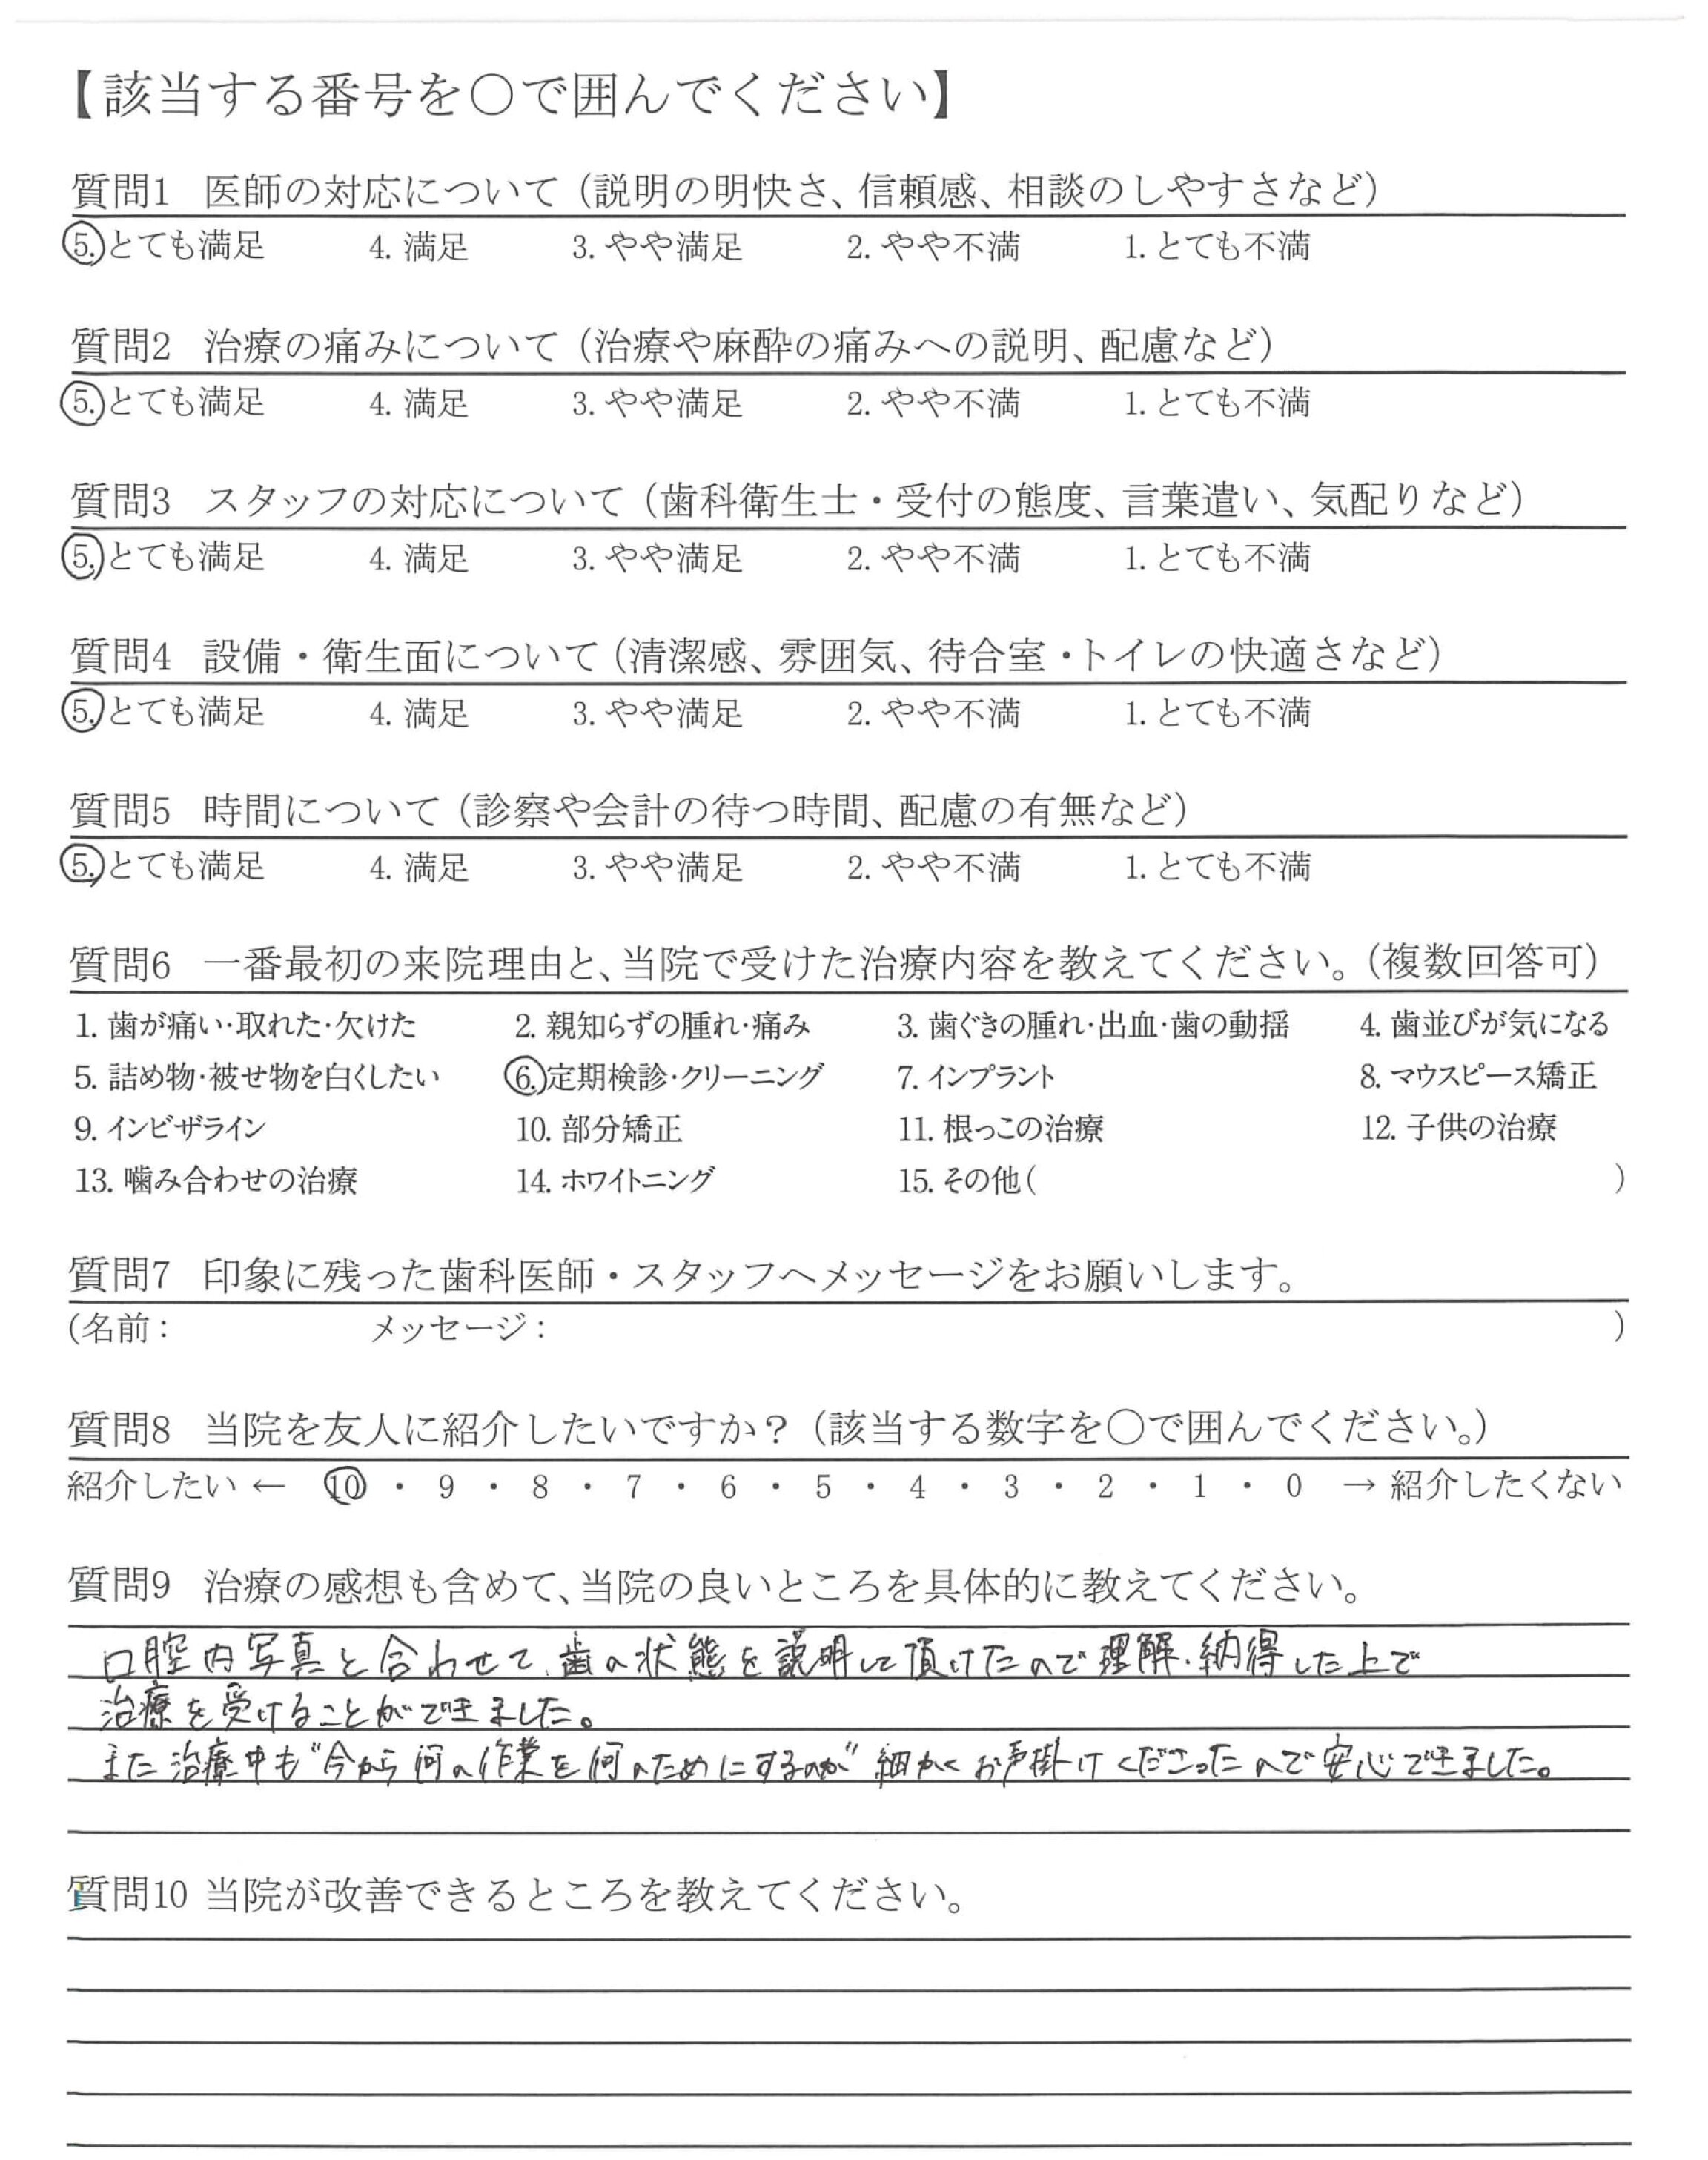 【該当する番号を○で囲んでください】
質問1 医師の対応について（説明の明快さ、信頼感、相談のしやすさなど）
5.とても満足 4. 満足 3. やや満足 2. やや不満 1. とても不満
質問2 治療の痛みについて（治療や麻酔の痛みへの説明、配慮など）
5.とても満足 4. 満足 3. やや満足 2. やや不満 1. とても不満
質問3 スタッフの対応について（歯科衛生士・受付の態度、言葉遣い、気配りなど）
5.とても満足 4. 満足 3. やや満足 2. やや不満 1. とても不満
質問4 設備・衛生面について（清潔感、雰囲気、待合室・トイレの快適さなど）
5.とても満足 4. 満足 3. やや満足 2. やや不満 1. とても不満
質問5 時間について（診察や会計の待つ時間、配慮の有無など）
5.とても満足 4. 満足 3. やや満足 2. やや不満 1. とても不満
質問6 一番最初の来院理由と、当院で受けた治療内容を教えてください。（複数回答可）
1. 歯が痛い・取れた・欠けた 2. 親知らずの腫れ・痛み 3. 歯ぐきの腫れ・出血・歯の動揺 4. 歯並びが気になる
5. 詰め物・被せ物を白くしたい 6.定期検診・クリーニング 7. インプラント 8. マウスピース矯正
9. インビザライン 10. 部分矯正 11. 根っこの治療 12. 子供の治療
13. 噛み合わせの治療 14. ホワイトニング 15. その他（ ）
質問7 印象に残った歯科医師・スタッフへメッセージをお願いします。
（名前： メッセージ： ）
質問8 当院を友人に紹介したいですか？（該当する数字を○で囲んでください。）
紹介したい ← 10 ・ 9 ・ 8 ・ 7 ・ 6 ・ 5 ・ 4 ・ 3 ・ 2 ・ 1 ・ 0 → 紹介したくない
質問9 治療の感想も含めて、当院の良いところを具体的に教えてください。
口腔内写真と合わせて、歯の状態を説明して頂けたので理解・納得した上で
治療を受けることができました。
また治療中も"今から何の作業を何のためにするのか"細かくお声掛けくださったので安心できました。
質問10 当院が改善できるところを教えてください。